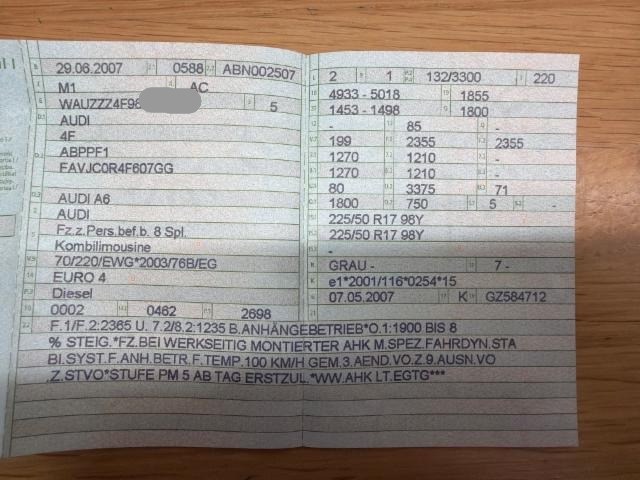 29.06.2007 0588 ABN002507
M1 AC
WAUZZZ4F98 5
AUDI
4F
ABPPF1
FAVJC0R4F607GG
AUDI A6
AUDI
Fz.z.Pers.bef.b. 8 Spl.
Kombilimousine
70/220/EWG*2003/76B/EG
EURO 4
Diesel
0002 0462 2698
2 1 132/3300 220
4933 - 5018 1855
1453 - 1498 1800
- 85 -
199 2355 2355
1270 1210 -
1270 1210 -
80 3375 71
1800 750 5 -
225/50 R17 98Y
225/50 R17 98Y
-
GRAU - 7 -
e1*2001/116*0254*15
07.05.2007 K GZ584712
F.1/F.2:2365 U. 7.2/8.2:1235 B.ANHÄNGEBETRIEB*O.1:1900 BIS 8
% STEIG.*FZ.BEI WERKSEITIG MONTIERTER AHK M.SPEZ.FAHRDYN.STA
BI.SYST.F.ANH.BETR.F.TEMP.100 KM/H GEM.3.AEND.VO.Z.9.AUSN.VO
.Z.STVO*STUFE PM 5 AB TAG ERSTZUL.*WW.AHK LT.EGTG***